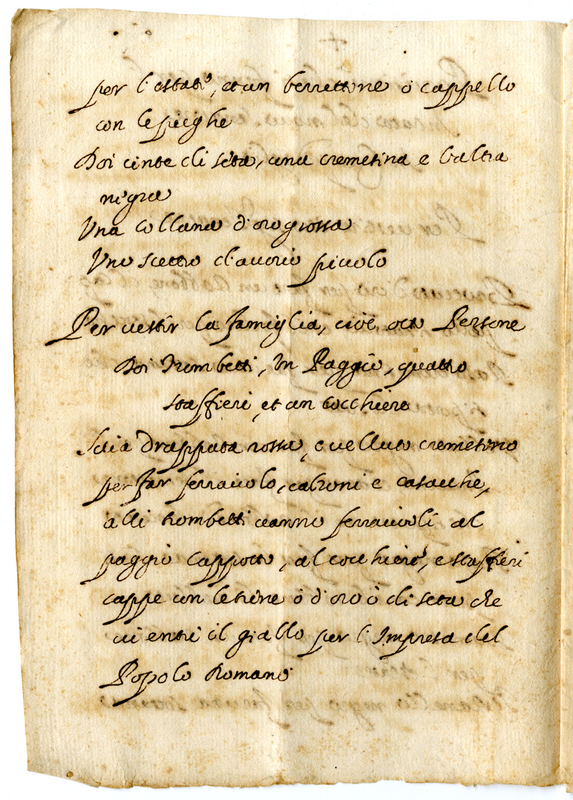 per l'estate, et un berrettone ò cappello
con le pieghe
Doi cinte di seta, una cremesina e l'altra
nigra
Una collana d'oro grossa
Uno scettro d'avorio piccolo
Per vestir la famiglia, cioè, octo Persone
Doi Trombetti, un Paggio, quattro
staffieri, et un cocchiero
Setia Drappata rossa, e velluto cremesino
per far ferraiolo, calzoni e casacche,
alli trombetti vanno ferraioli al
paggio cappotto, al cocchiero, e staffieri
cappe con le trine ò d'oro ò di seta che
vi entri il giallo per l'Impresa del
Popolo Romano